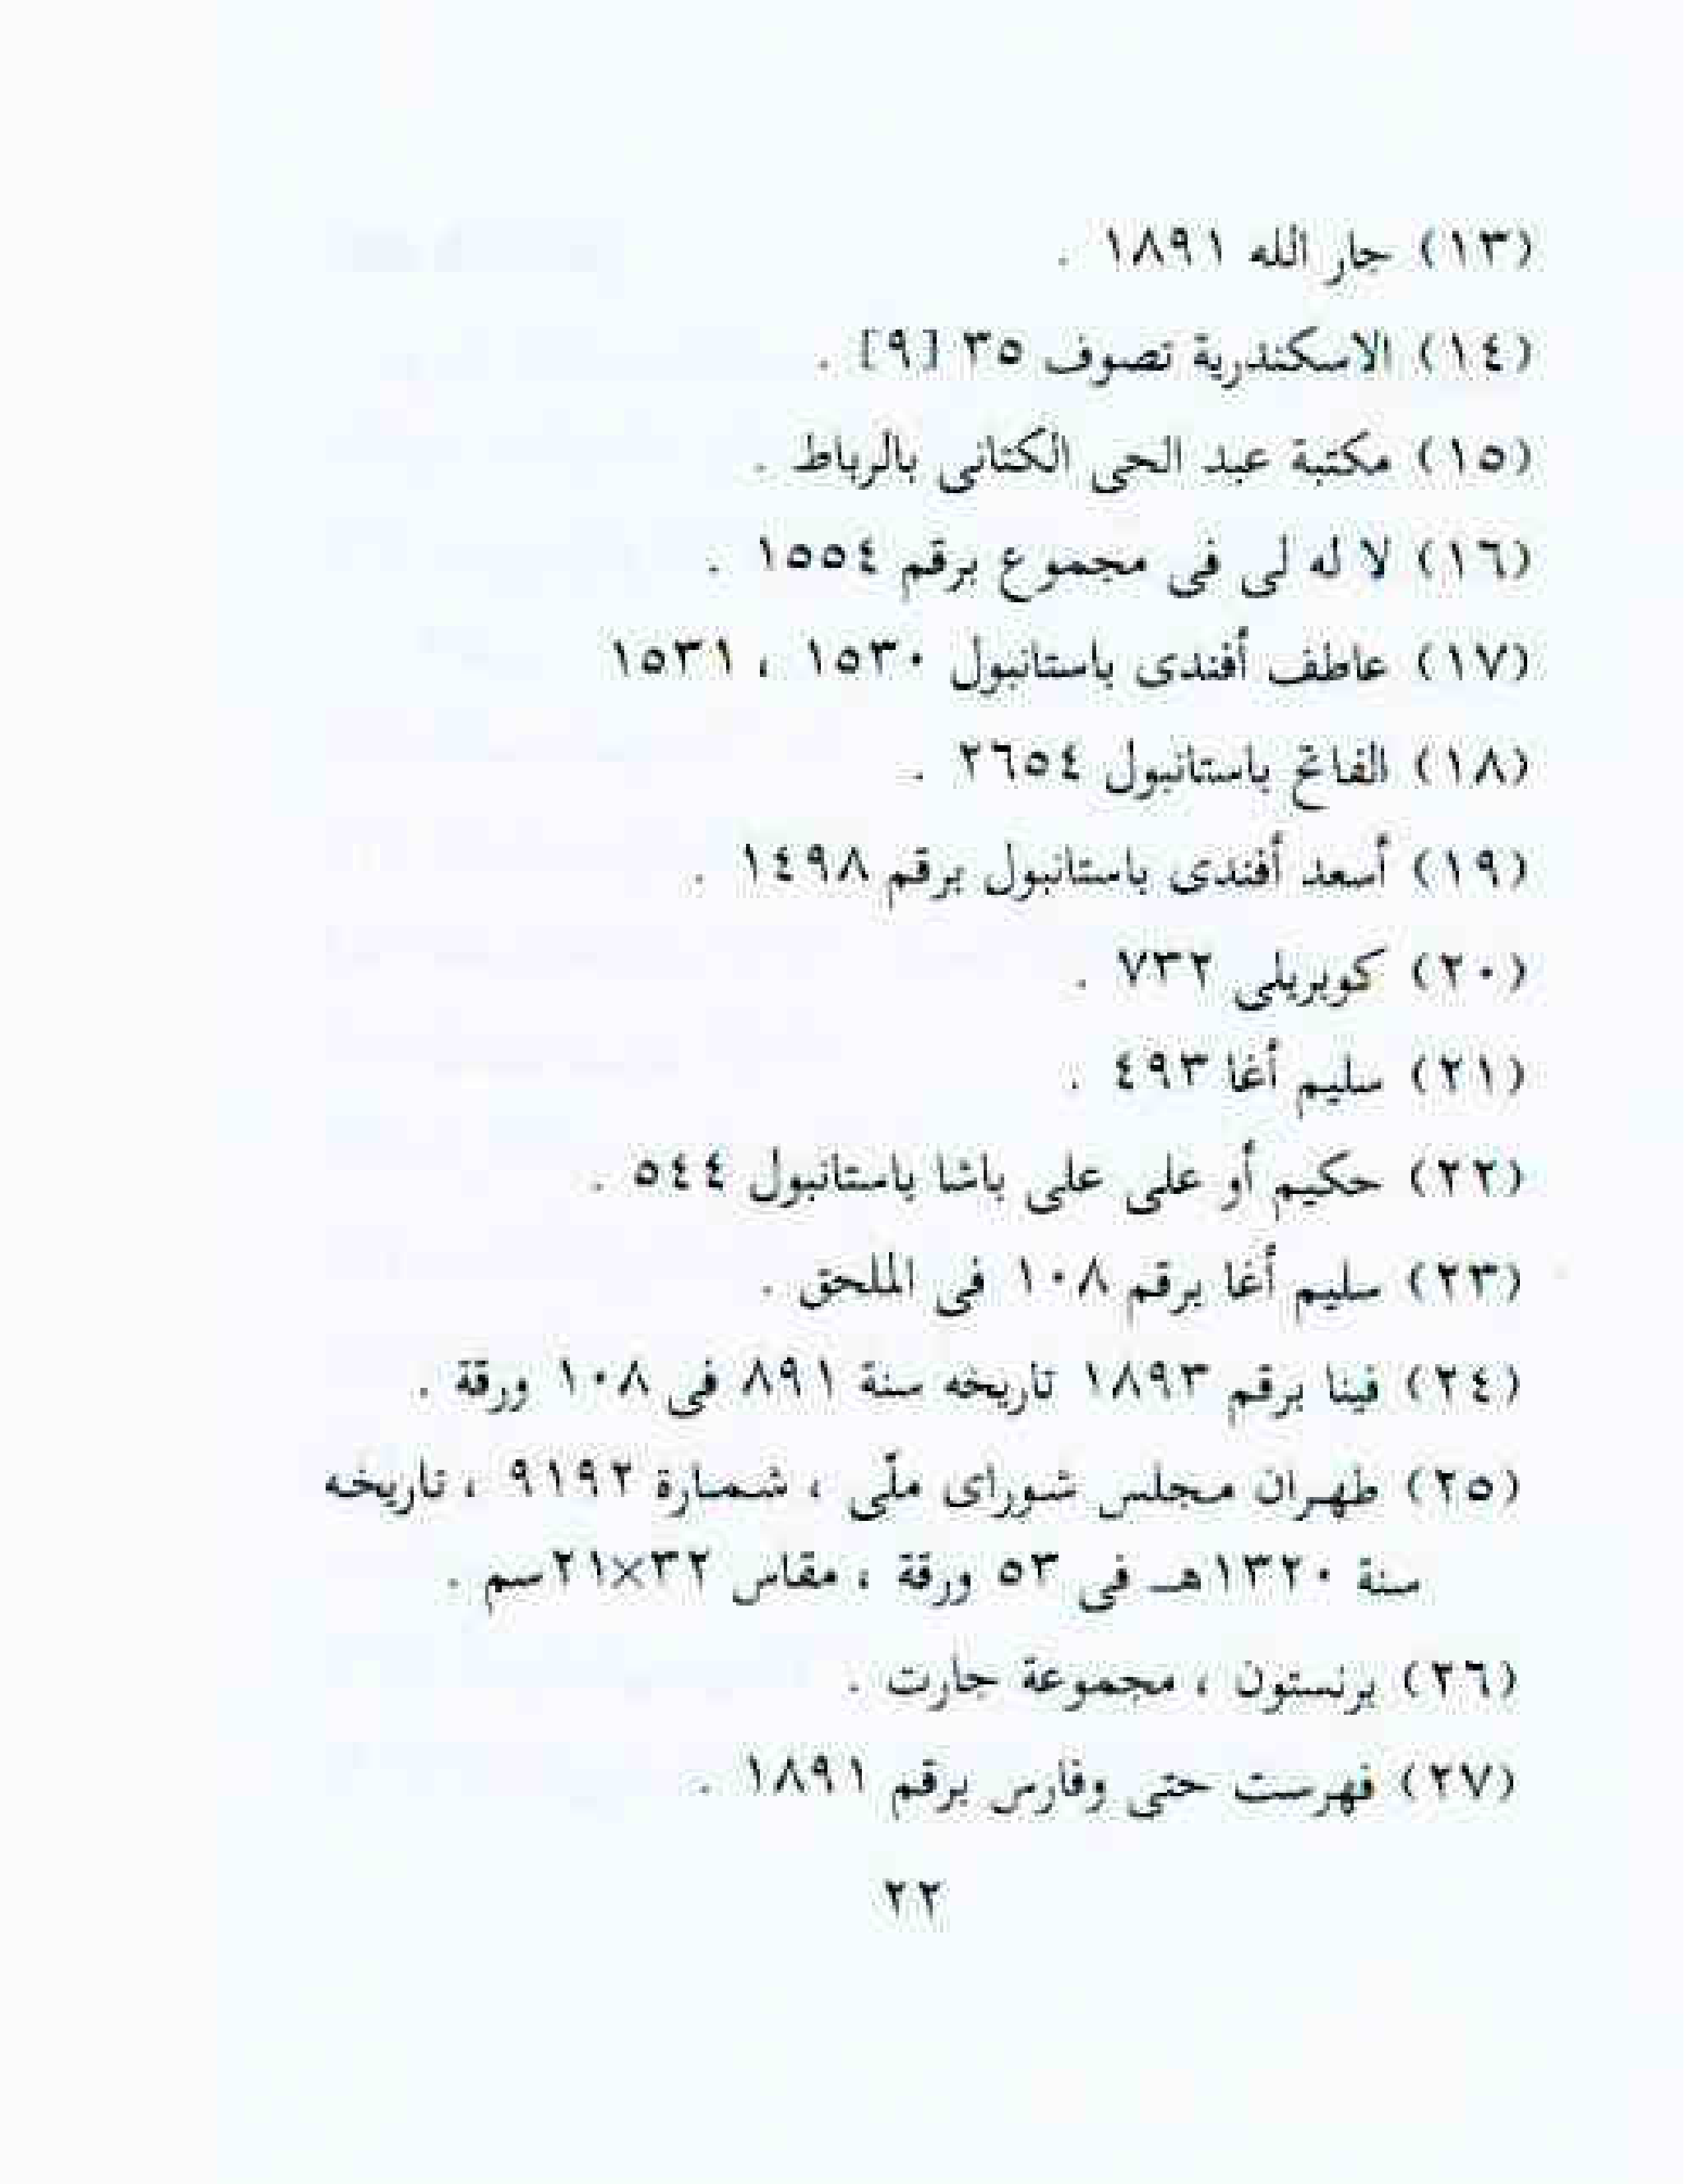 (١٣) جار الله ١٨٩١ .
(١٤) الاسكندرية تصوف ٣٥ [٩] .
(١٥) مكتبة عبد الحى الكتانى بالرباط .
(١٦) لا له لى فى مجموع برقم ١٥٥٤ .
(١٧) عاطف أفندى باستانبول ١٥٣٠ ، ١٥٣١
(١٨) الفاتح باستانبول ٢٦٥٤ .
(١٩) أسعد أفندى باستانبول برقم ١٤٩٨ .
(٢٠) كوبريلى ٧٣٢ .
(٢١) سليم أغا ٤٩٣ .
(٢٢) حكيم أو على على باشا باستانبول ٥٤٤ .
(٢٣) سليم أغا برقم ١٠٨ فى الملحق .
(٢٤) فينا برقم ١٨٩٣ تاريخه سنة ٨٩١ فى ١٠٨ ورقة .
(٢٥) طهران مجلس شوراى ملّى ، شمارة ٩١٩٢ ، تاريخه
سنة ١٣٢٠هـ فى ٥٣ ورقة ، مقاس ٣٢×٢١سم .
(٢٦) برنستون ، مجموعة جارت .
(٢٧) فهرست حتى وفارس برقم ١٨٩١ .
٢٢